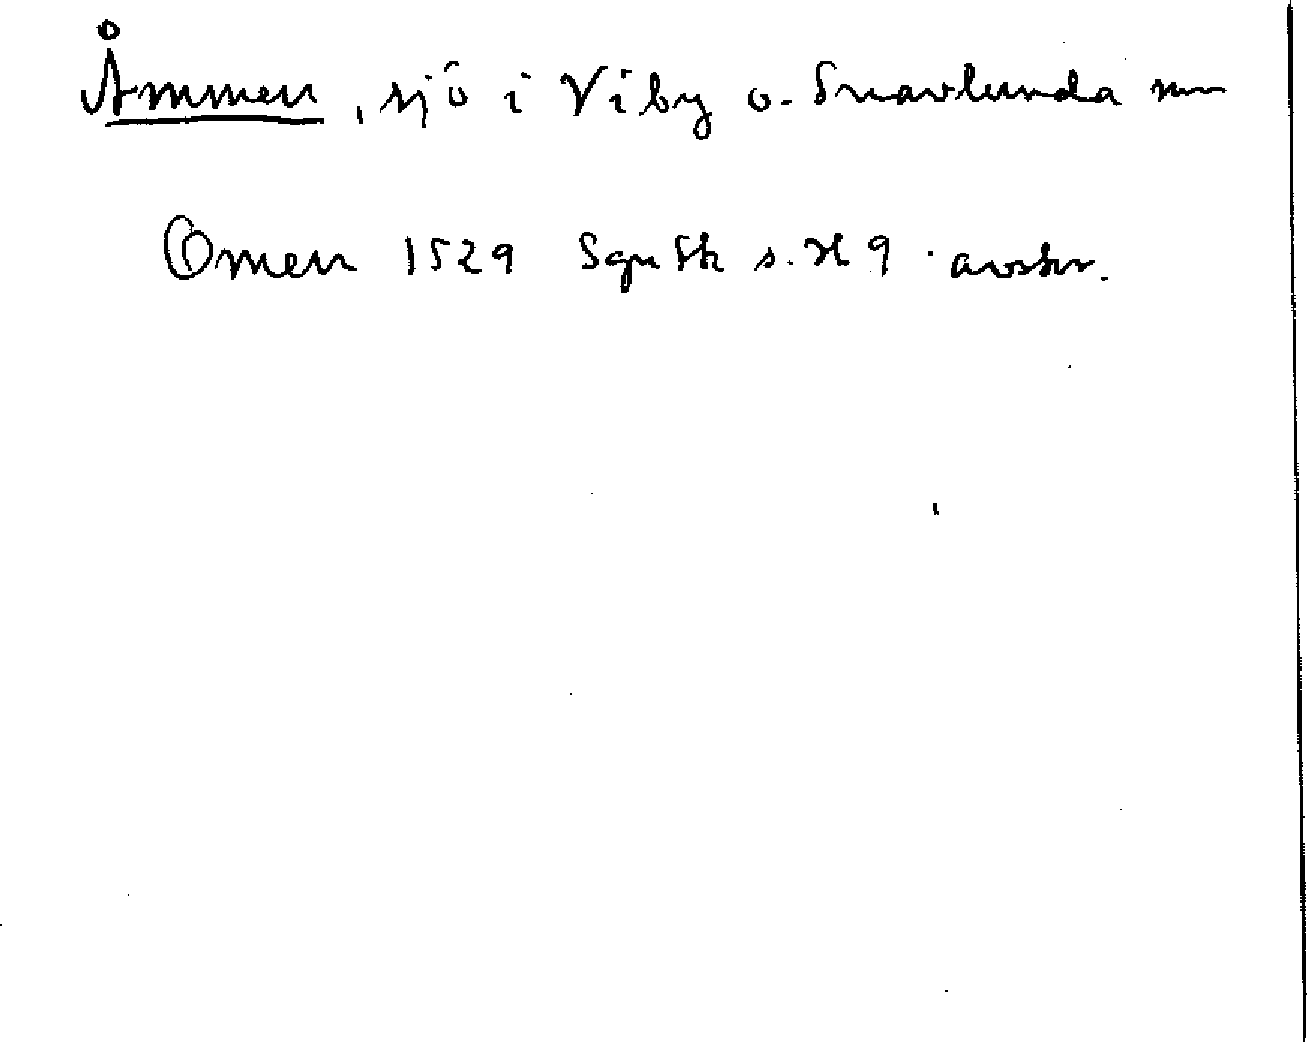 Åmmen, sjö i Viby o. Snavlunda snr
Omen 1529 Sgn Sk s. 9 avskr.